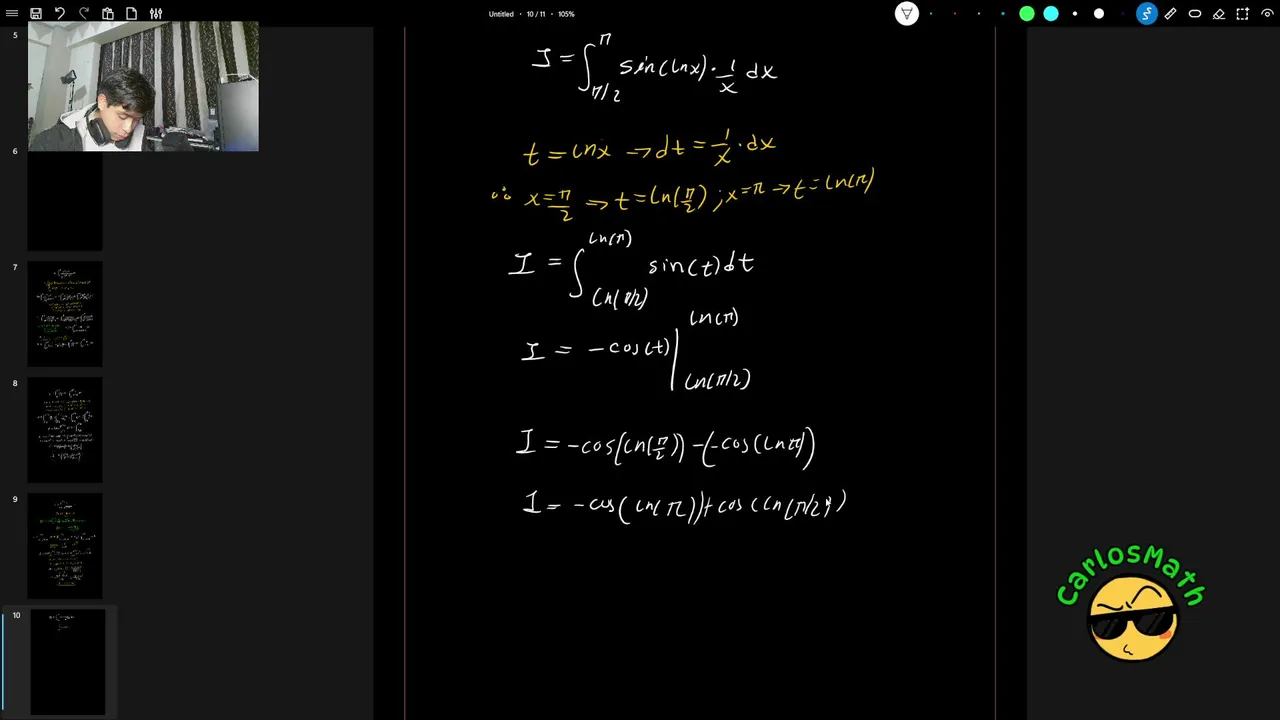 Untitled • 10 / 11 • 105%
5
6
7
8
9
10
I = ∫_{π/2}^{π} sin(lnx)·1/x dx
t = lnx → dt = 1/x · dx
∴ x = π/2 ⇒ t = ln(π/2) ; x = π → t = ln(π)
I = ∫_{ln(π/2)}^{ln(π)} sin(t)dt
I = -cos(t)|_{ln(π/2)}^{ln(π)}
I = -cos(ln(π/2)) - (-cos(lnπ))
I = -cos(ln(π)) + cos(ln(π/2))
CarlosMath